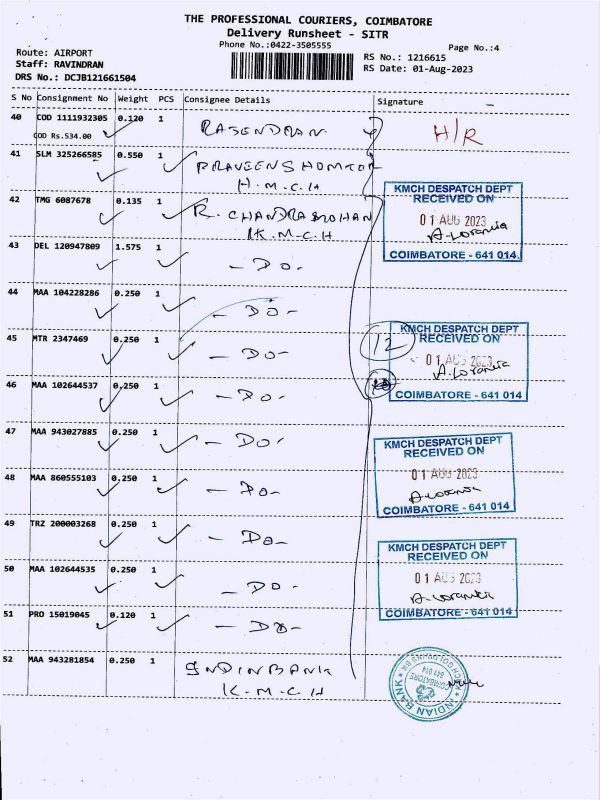 THE PROFESSIONAL COURIERS, COIMBATORE
Delivery Runsheet - SITR
Phone No.:0422-3505555
Page No.:4
Route: AIRPORT
Staff: RAVINDRAN
DRS No.: DCJB121661504
RS No.: 1216615
RS Date: 01-Aug-2023
S No Consignment No Weight PCS Consignee Details Signature
40 COD 1111932305 0.120 1 RAJENDRAN H/R
COD Rs.534.00
41 SLM 325266585 0.550 1
42 TMG 6087678 0.135 1 R. CHANDRAMOHAN
K.M.C.H
KMCH DESPATCH DEPT
RECEIVED ON
01 AUG 2023
COIMBATORE - 641 014.
43 DEL 120947809 1.575 1 - DO -
44 MAA 104228286 0.250 1 - DO -
45 MTR 2347469 0.250 1 - DO - 12
KMCH DESPATCH DEPT
RECEIVED ON
01 AUG 2023
COIMBATORE - 641 014
46 MAA 102644537 0.250 1 - DO -
47 MAA 943027885 0.250 1 - DO -
KMCH DESPATCH DEPT
RECEIVED ON
01 AUG 2023
COIMBATORE - 641 014
48 MAA 860555103 0.250 1 - DO -
49 TRZ 200003268 0.250 1 - DO -
KMCH DESPATCH DEPT
RECEIVED ON
01 AUG 2023
COIMBATORE - 641 014
50 MAA 102644535 0.250 1 - DO -
51 PRO 15019045 0.120 1 - DO -
52 MAA 943281854 0.250 1 INDIN BANK
K.M.C.H
INDIAN BANK
COIMBATORE
641 014